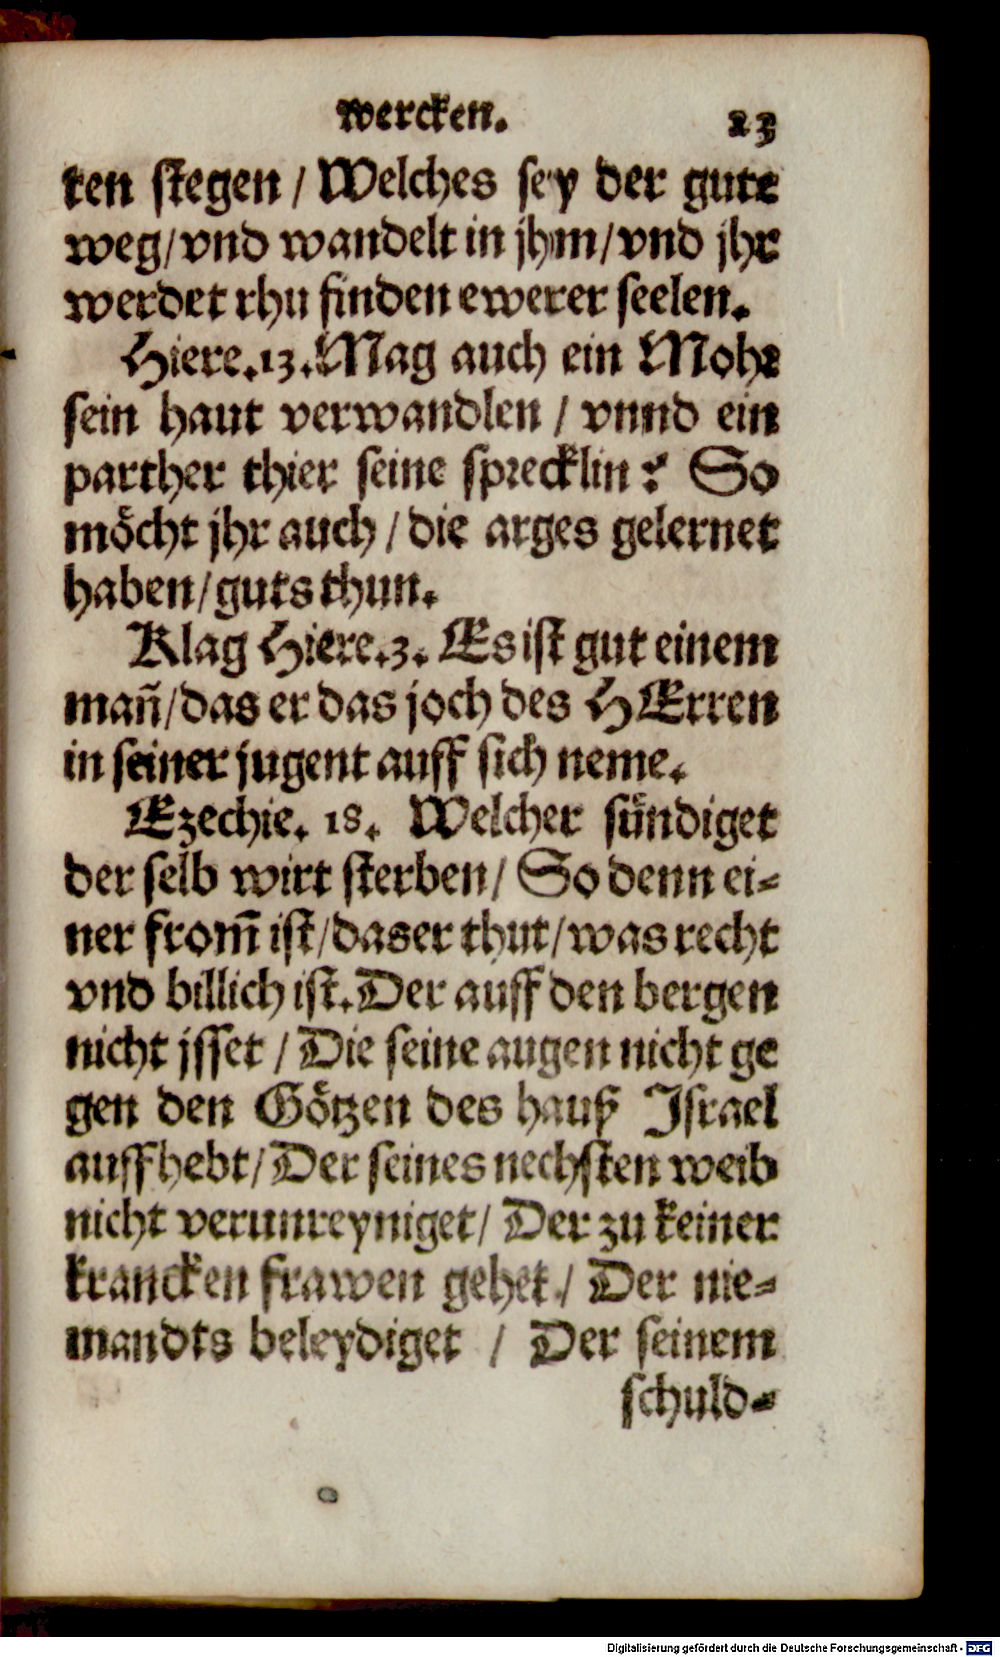 wercken. 23
ten stegen / Welches sey der gute
weg/vnd wandelt in jhm/vnd jhr
werdet rhu finden ewerer seelen.
Hiere.13. Mag auch ein Mohr
sein haut verwandlen / vnnd ein
parther thier seine sprecklin? So
möcht jhr auch / die arges gelernet
haben/guts thun.
Klag Hiere.3. Es ist gut einem
mañ/das er das joch des HErren
in seiner jugent auff sich neme.
Ezechie. 18. Welcher sündiget
der selb wirt sterben/ So denn ei-
ner from̃ ist/das er thut/was recht
vnd billich ist. Der auff den bergen
nicht jsset / Die seine augen nicht ge
gen den Götzen des hauß Israel
auffhebt/ Der seines nechsten weib
nicht verunreyniget/ Der zu keiner
krancken frawen gehet / Der nie-
mandts beleydiget / Der seinem
schuld-
Digitalisierung gefördert durch die Deutsche Forschungsgemeinschaft - DFG